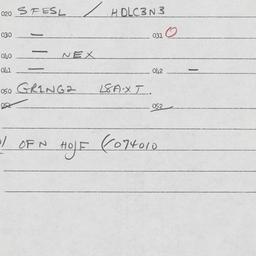 020 SFESL / HDLC3N3
030 — 031 O
040 — NEX
041 — 042 —
050 GRING2 L8A·XT.
051 052
OFN HOJF (074010